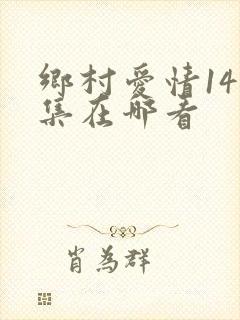 鄉村愛情14
集在哪看
肖為群